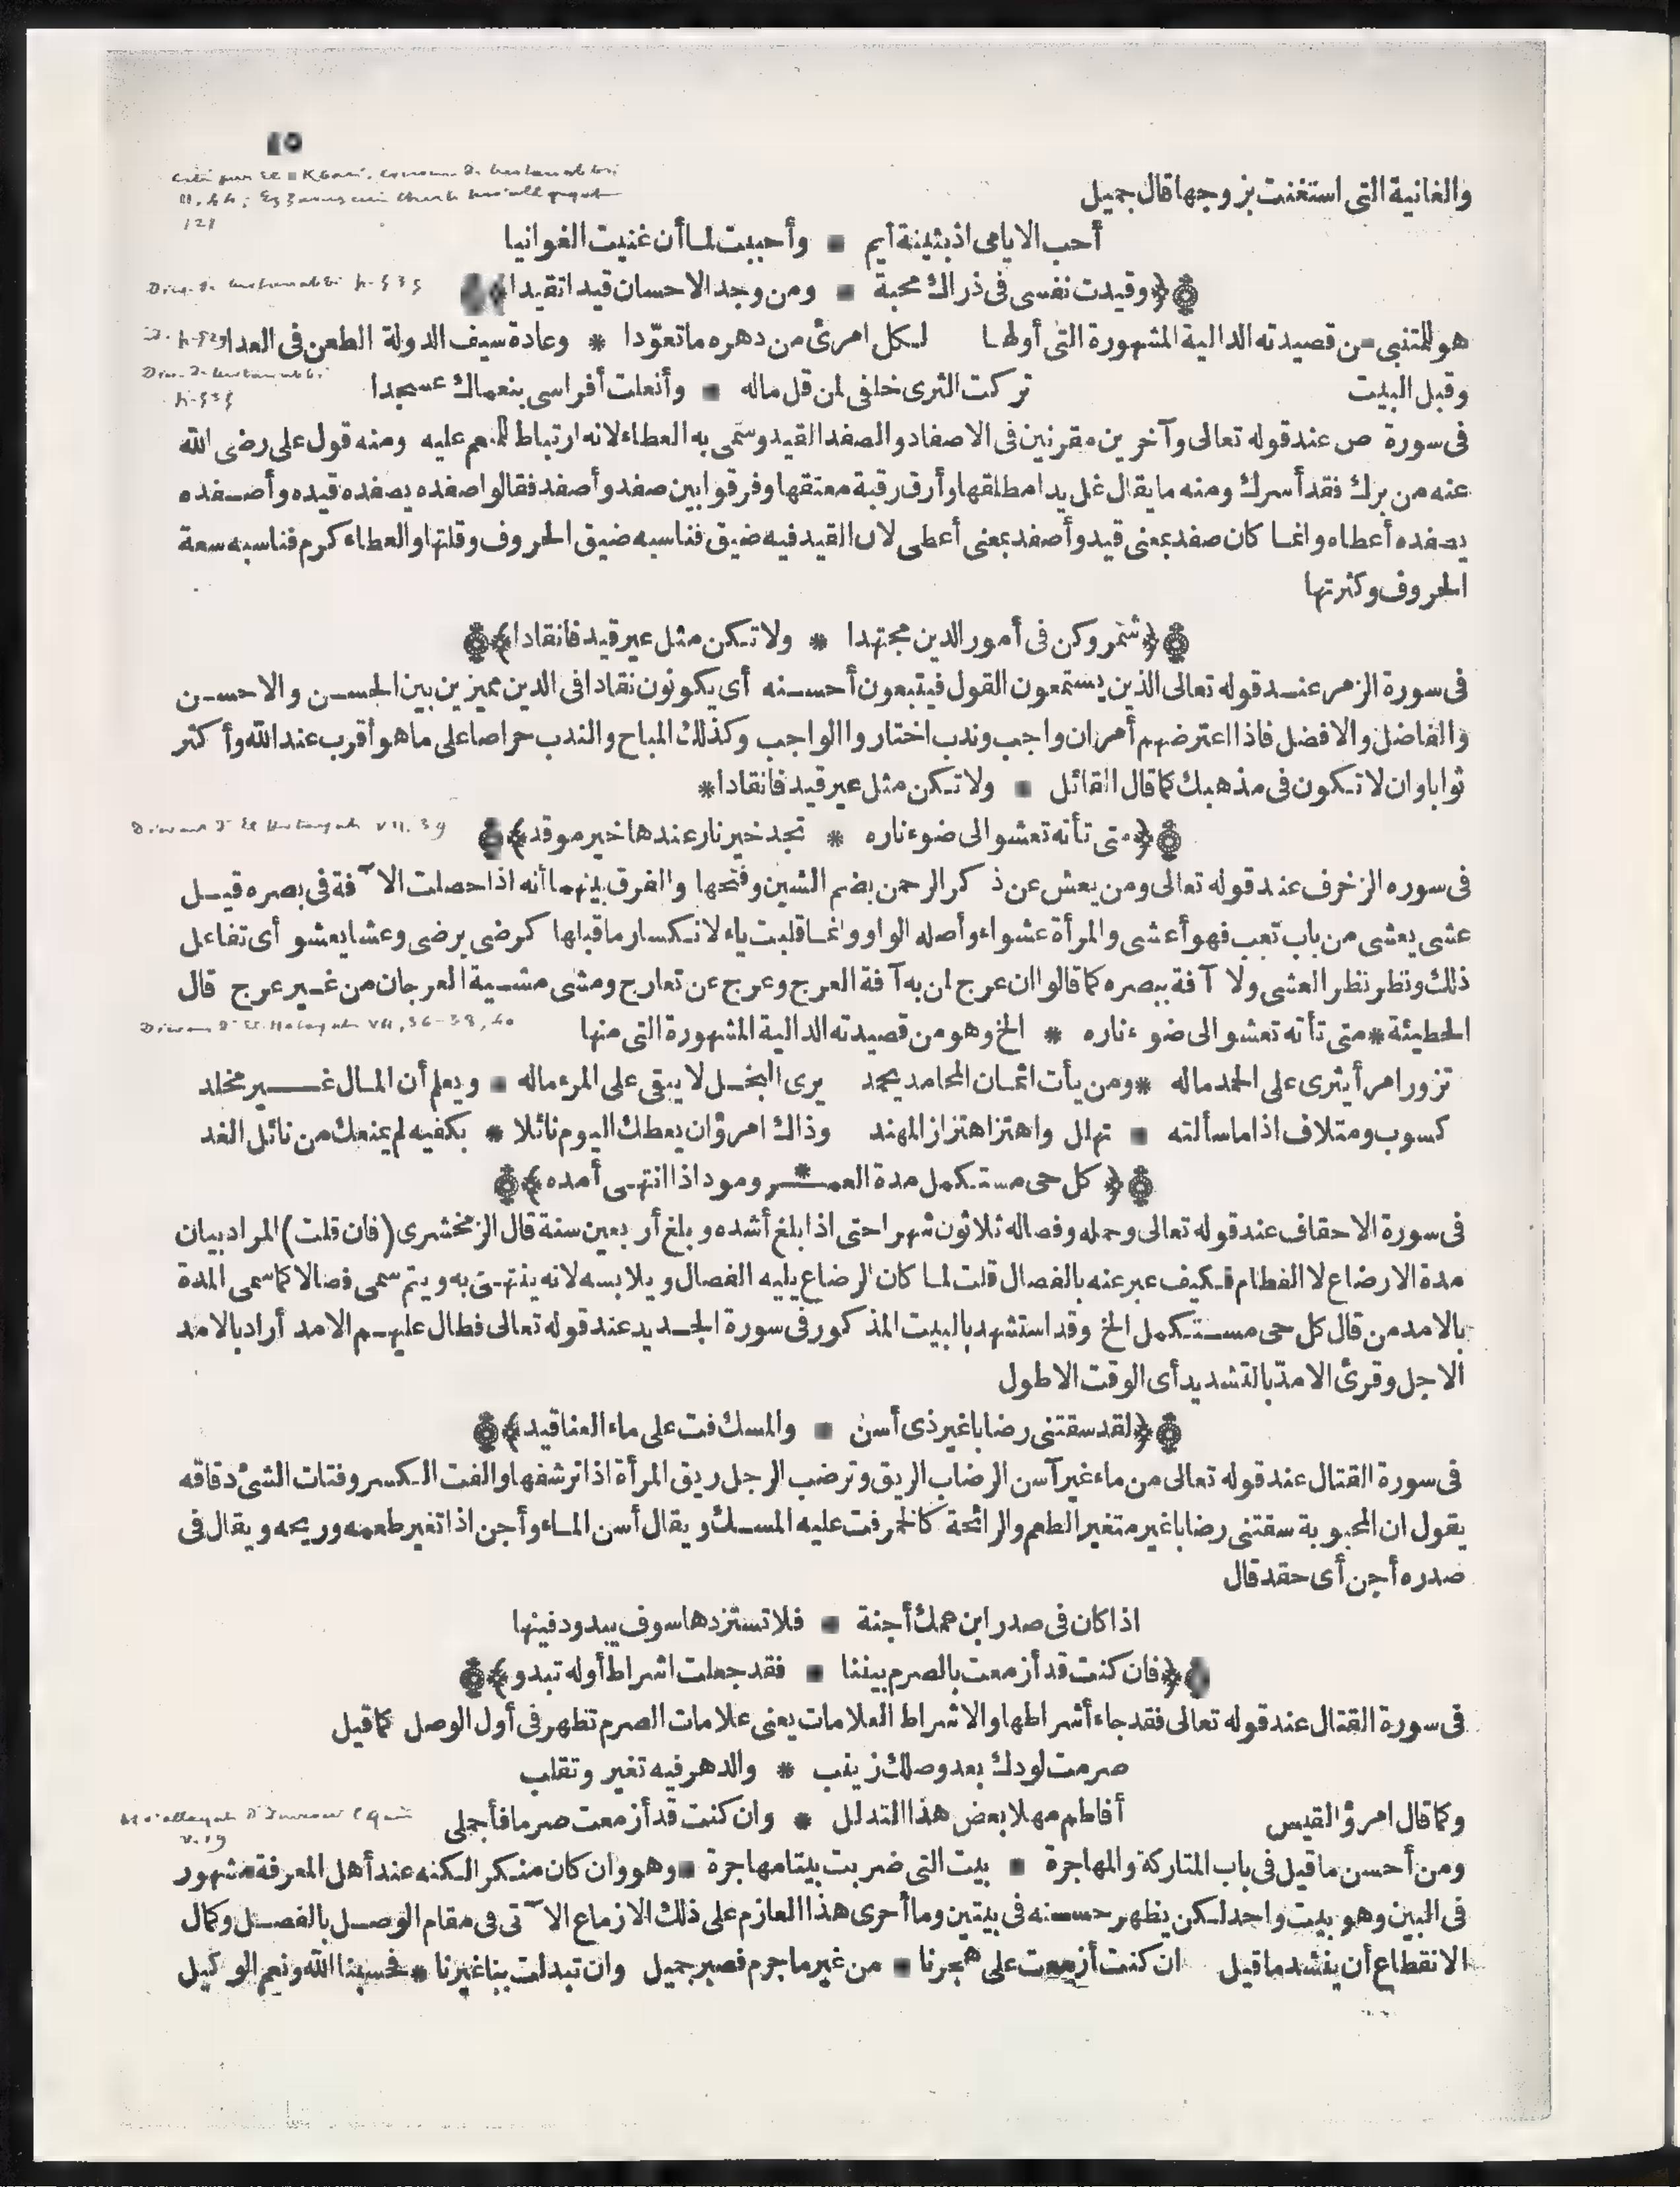 والغانية التى استغنت بزوجها قال جميل
أحب الايامى اذ بثينة أيم * وأحببت لما أن غنيت الغوانيا
﴿وقيدت نفسى فى ذراك محبة * ومن وجد الاحسان قيدا تقيدا﴾
هو للمتنبى من قصيدته الدالية المشهورة التى أولها لكل امرئ من دهره ما تعوّدا * وعادة سيف الدولة الطعن فى العدا
وقبل البيت تركت الثرى خلفى لمن قل ماله * وأنعلت أفراسى بنعماك عسجدا
فى سورة ص عند قوله تعالى وآخرين مقرنين فى الاصفاد والصفد القيد وسمّى به العطاء لانه ارتباط للمنعم عليه ومنه قول على رضى الله
عنه من برك فقد أسرك ومنه ما يقال غل يدا مطلقها وأرق رقبة معتقها وفرقوا بين صفد وأصفد فقالوا صفده يصفده قيده وأصفده
يصفده أعطاه وانما كان صفد بمعنى قيد وأصفد بمعنى أعطى لان القيد فيه ضيق فناسبه ضيق الحروف وقلتها والعطاء كرم فناسبه سعة
الحروف وكثرتها
﴿شمر وكن فى أمور الدين مجتهدا * ولا تكن مثل عير قيد فانقادا﴾
فى سورة الزمر عند قوله تعالى الذين يستمعون القول فيتبعون أحسنه أى يكونون نقادا فى الدين مميزين بين الحسن والاحسن
والفاضل والافضل فاذا اعترضهم أمران واجب وندب اختاروا الواجب وكذلك المباح والندب حراصا على ما هو أقرب عند الله وأكثر
ثوابا وان لا تكون فى مذهبك كما قال القائل * ولا تكن مثل عير قيد فانقادا*
﴿متى تأته تعشو الى ضوء ناره * تجد خير نار عندها خير موقد﴾
فى سوره الزخرف عند قوله تعالى ومن يعش عن ذكر الرحمن بضم الشين وفتحها والفرق بينهما أنه اذا حصلت الآفة فى بصره قيل
عشى يعشى من باب تعب فهو أعشى والمرأة عشواء وأصله الواو وانما قلبت ياء لانكسار ما قبلها كرضى يرضى وعشا يعشو أى تفاعل
ذلك ونظر نظر العشى ولا آفة ببصره كما قالوا ان عرج لمن به آفة العرج وعرج عن تعارج ومشى مشية العرجان من غير عرج قال
الحطيئة * متى تأته تعشو الى ضوء ناره * الخ وهو من قصيدته الدالية المشهورة التى منها
تزور امرأ يثرى على الحمد ماله * ومن يأت اثمان المحامد يحمد يرى البخل لا يبقى على المرء ماله * ويعلم أن المال غير مخلد
كسوب ومتلاف اذا ما سألته * تهلل واهتز اهتزاز المهند وذاك امرؤ ان يعطك اليوم نائلا * بكفيه لم يمنعك من نائل الغد
﴿كل حى مستكمل مدة العمـ * ـر ومود اذا انتهى أمده﴾
فى سورة الاحقاف عند قوله تعالى وحمله وفصاله ثلاثون شهرا حتى اذا بلغ أشده وبلغ أربعين سنة قال الزمخشرى (فان قلت) المراد بيان
مدة الارضاع لا الفطام فكيف عبر عنه بالفصال قلت لما كان الرضاع يليه الفصال ويلابسه لانه ينتهى به ويتم سمى فصالا كما سمى المدة
بالامد من قال كل حى مستكمل الخ وقد استشهد بالبيت المذكور فى سورة الحديد عند قوله تعالى فطال عليهم الامد أراد بالامد
الاجل وقرئ الامدّ بالتشديد أى الوقت الاطول
﴿لقد سقتنى رضابا غير ذى أسن * والمسك فت على ماء العناقيد﴾
فى سورة القتال عند قوله تعالى من ماء غير آسن الرضاب الريق وترضب الرجل ريق المرأة اذا ترشفها والفت الكسر وفتات الشئ دقاقه
يقول ان المحبوبة سقتنى رضابا غير متغير الطعم والرائحة كالخمر فت عليه المسك ويقال أسن الماء وأجن اذا تغير طعمه وريحه ويقال فى
صدره أجن أى حقد قال
اذا كان فى صدر ابن عمك أجنة * فلا تستزدها سوف يبدو دفينها
﴿فان كنت قد أزمعت بالصرم بيننا * فقد جعلت اشراط أوله تبدو﴾
فى سورة القتال عند قوله تعالى فقد جاء أشراطها والاشراط العلامات يعنى علامات الصرم تظهر فى أول الوصل كما قيل
صرمت لودك بعد وصلك زينب * والدهر فيه تغير وتقلب
وكما قال امرؤ القيس أفاطم مهلا بعض هذا التدلل * وان كنت قد أزمعت صرما فأجملى
ومن أحسن ما قيل فى باب المتاركة والمهاجرة * بيت التى ضربت بيتا مهاجرة * وهو وان كان منكر الكنه عند أهل المعرفة مشهور
فى البين وهو بيت واحد لكن يظهر حسنه فى بيتين وما أحرى هذا العازم على ذلك الازماع الآتى فى مقام الوصل بالفصل وكمال
الانقطاع أن ينشد ما قيل ان كنت أزمعت على هجرنا * من غير ما جرم فصبر جميل وان تبدلت بنا غيرنا * فحسبنا الله ونعم الوكيل